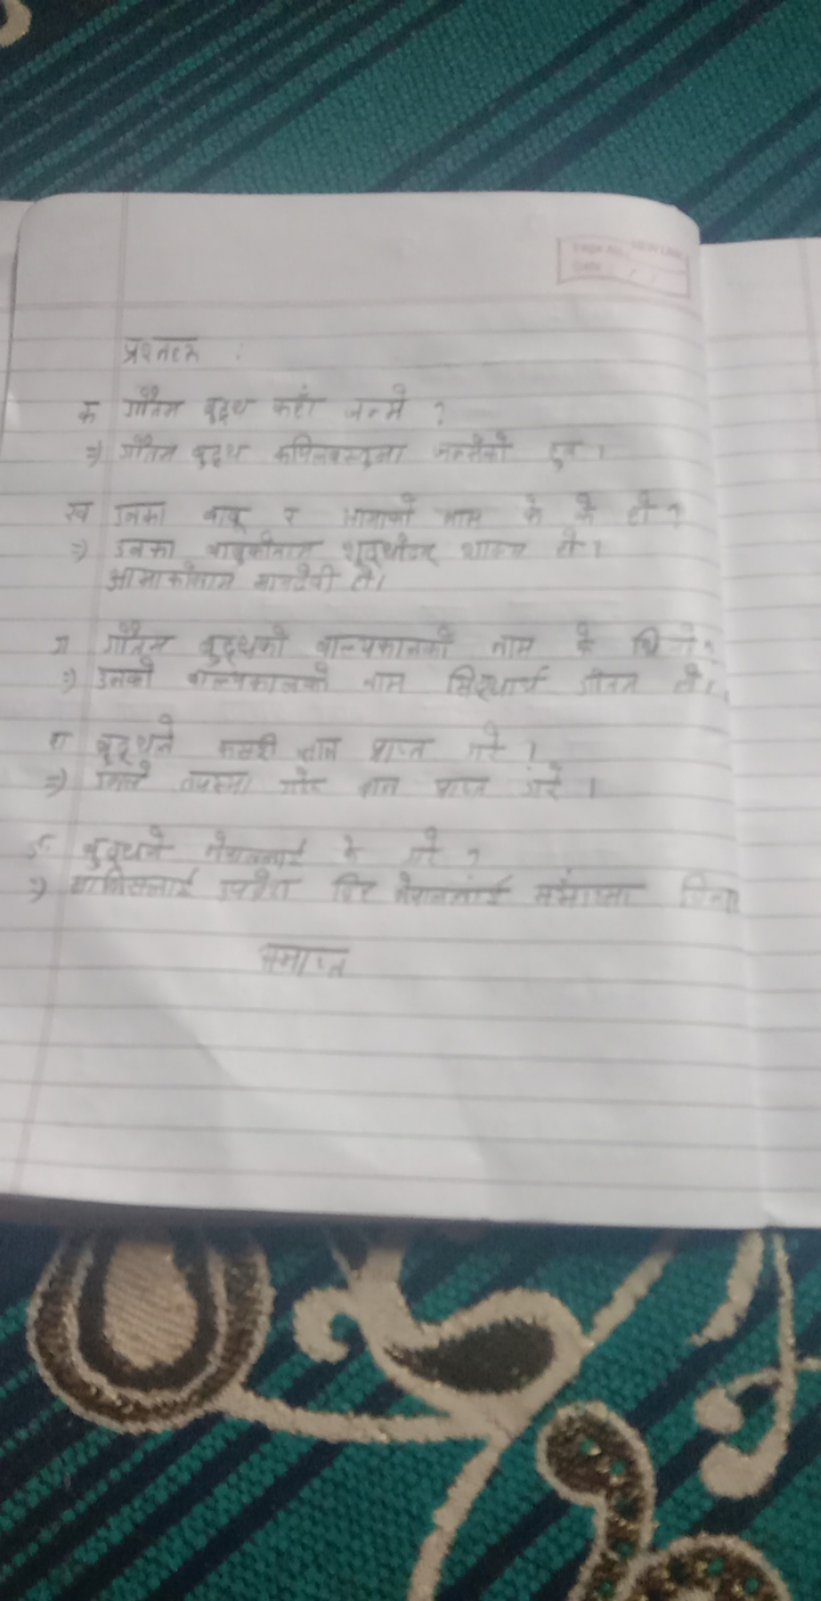 प्रश्नहरू :
क गौतम बुद्ध कहाँ जन्मे ?
=) गौतम बुद्ध कपिलवस्तुमा जन्मेको हुन ।
ख उनका बाबु र आमाको नाम के के हो ?
=) उनका बाबुकोनाम शुद्धोदन शाक्य हो ।
आमाकोनाम मायादेवी हो।
ग गौतम बुद्धको बाल्यकालको नाम के थियो ?
=) उनको बाल्यकालको नाम सिद्धार्थ गौतम हो ।
घ बुद्धले कसरी ज्ञान प्राप्त गरे ?
=) उनले तपस्या गरेर ज्ञान प्राप्त गरे ।
ङ बुद्धले नेपाललाई के गरे ?
=) मानिसलाई उपदेश दिए नेपाललाई
समाप्त